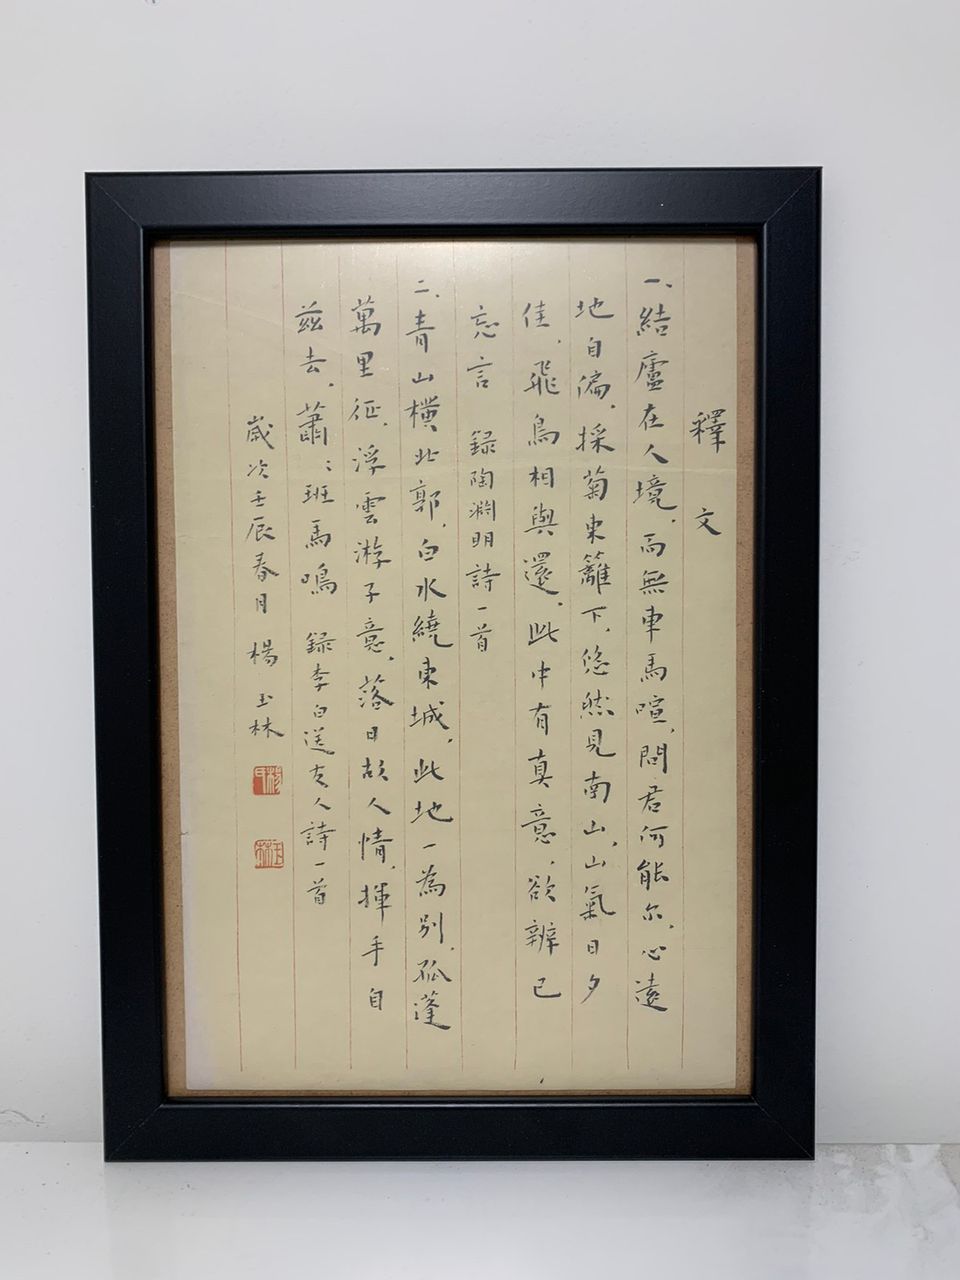 釋文
一、結廬在人境，而無車馬喧，問君何能尔，心遠
地自偏，採菊東籬下，悠然見南山，山氣日夕
佳，飛鳥相與還，此中有真意，欲辨已
忘言 録陶淵明詩一首
二、青山橫北郭，白水繞東城，此地一為別，孤蓬
萬里征，浮雲游子意，落日故人情，揮手自
茲去，蕭〻班馬鳴 録李白送友人詩一首
歲次壬辰春月 楊玉林
楊印
玉林